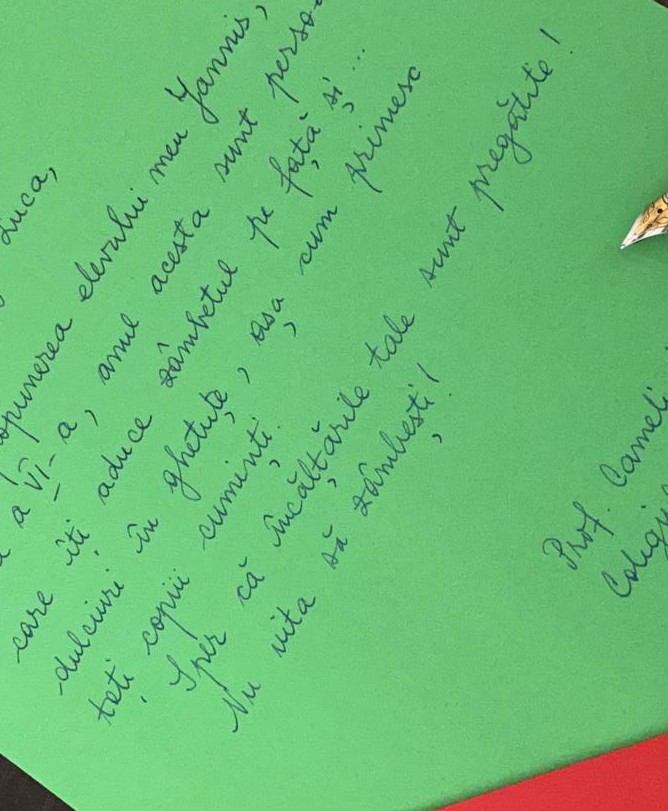 Luca,
propunerea elevului meu Yannis,
a VI-a, anul acesta sunt perso
care îți aduce zâmbetul pe față și...
dulciuri în ghetuțe, așa cum primesc
toți copiii cuminți.
Sper că încălțările tale sunt pregătite!
Nu uita să zâmbești!
Prof. Cameli
Colegi